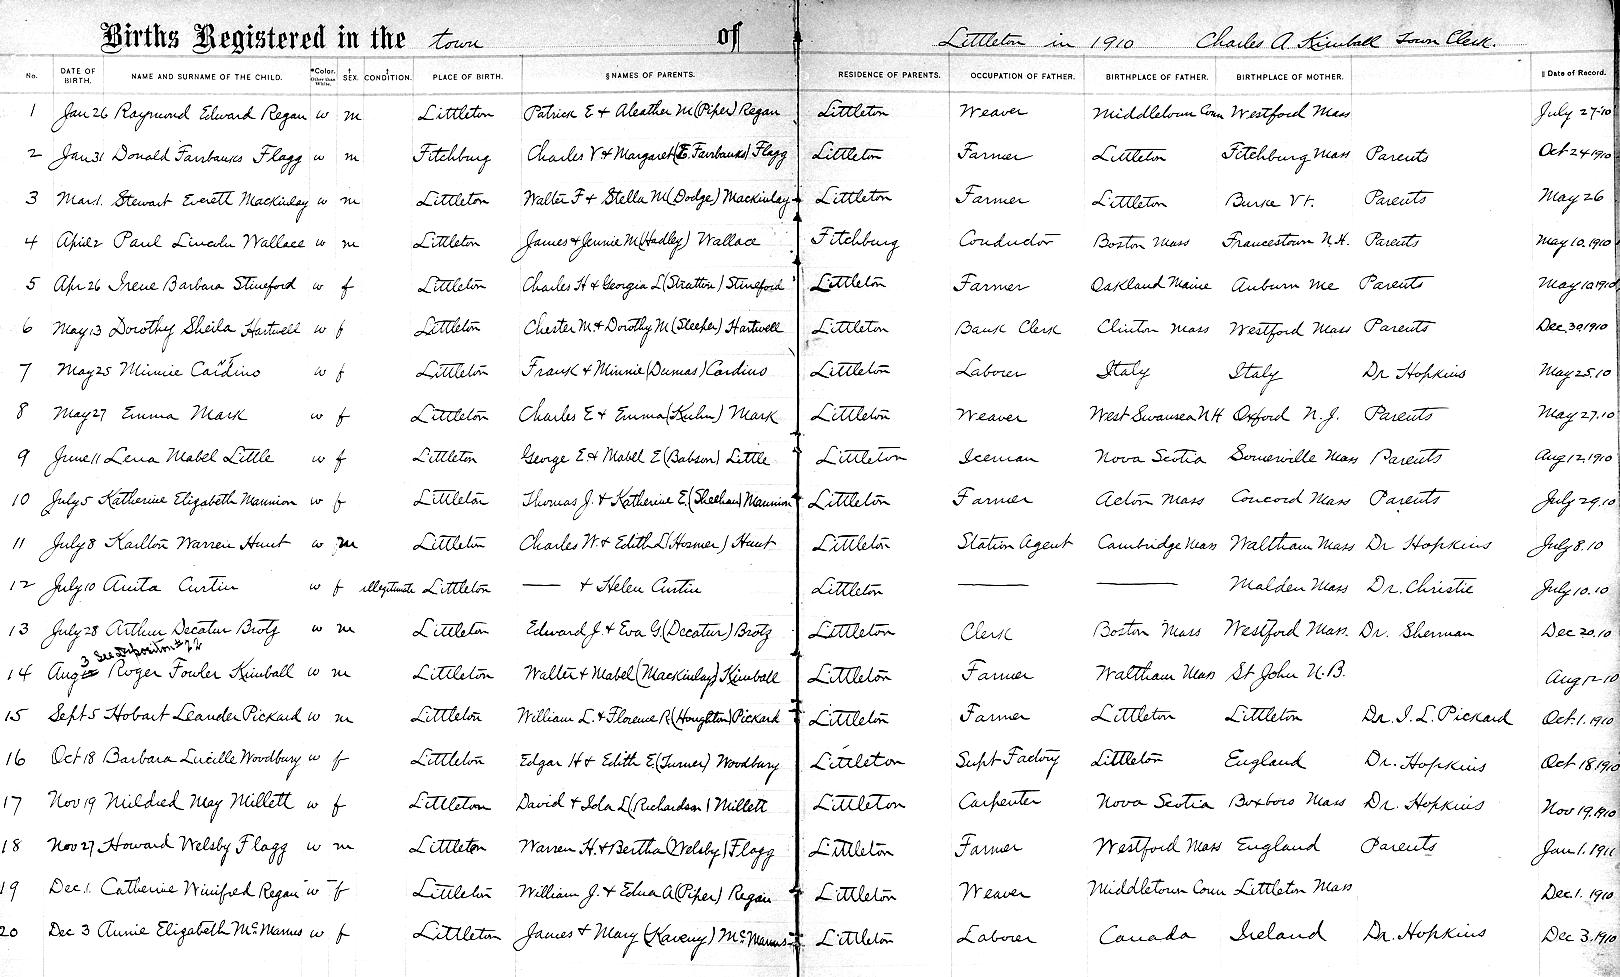 Births Registered in the town of Littleton in 1910 Charles A. Kimball Town Clerk.
No. DATE OF BIRTH. NAME AND SURNAME OF THE CHILD. *Color. Other than White. † SEX. ‡ CONDITION. PLACE OF BIRTH. § NAMES OF PARENTS. RESIDENCE OF PARENTS. OCCUPATION OF FATHER. BIRTHPLACE OF FATHER. BIRTHPLACE OF MOTHER. || Date of Record.
1 Jan 26 Raymond Edward Regan w m Littleton Patrick E & Aleather M (Piper) Regan Littleton Weaver Middletown Conn Westford Mass July 27-'10
2 Jan 31 Donald Fairbanks Flagg w m Fitchburg Charles V & Margaret (E. Fairbanks) Flagg Littleton Farmer Littleton Fitchburg Mass Parents Oct 24 1910
3 Mar 1. Stewart Everett Mackinlay w m Littleton Walter F & Stella M (Dodge) Mackinlay Littleton Farmer Littleton Burke Vt. Parents May 26
4 April 2 Paul Lincoln Wallace w m Littleton James & Jennie M (Hadley) Wallace Fitchburg Conductor Boston Mass Francestown N.H. Parents May 10. 1910
5 Apr 26 Irene Barbara Stineford w f Littleton Charles H & Georgia L (Stratton) Stineford Littleton Farmer Oakland Maine Auburn Me Parents May 10 1910
6 May 13 Dorothy Sheila Hartwell w f Littleton Chester M & Dorothy M (Sleeper) Hartwell Littleton Bank Clerk Clinton Mass Westford Mass Parents Dec. 30 1910
7 May 25 Minnie Cardino w f Littleton Frank & Minnie (Dumas) Cardino Littleton Laborer Italy Italy Dr Hopkins May 25. 10
8 May 27 Emma Mark w f Littleton Charles E & Emma (Kuhn) Mark Littleton Weaver West Swansea NH Oxford N.J. Parents May 27. 10
9 June 11 Lena Mabel Little w f Littleton George E & Mabel E (Babson) Little Littleton Iceman Nova Scotia Somerville Mass Parents Aug 12 1910
10 July 5 Katherine Elizabeth Mannion w f Littleton Thomas J. & Katherine E. (Sheehan) Mannion Littleton Farmer Acton Mass Concord Mass Parents July 29. 10
11 July 8 Karlton Warren Hunt w m Littleton Charles W. & Edith L (Hosmer) Hunt Littleton Station Agent Cambridge Mass Waltham Mass Dr Hopkins July 8. 10
12 July 10 Anita Curtin w f illegitimate Littleton — & Helen Curtin Littleton — — Malden Mass Dr. Christie July 10. 10
13 July 28 Arthur Decatur Brotz w m Littleton Edward J. & Eva G. (Decatur) Brotz Littleton Clerk Boston Mass Westford Mass. Dr. Sherman Dec 20. 10
3 See Deposition # 22
14 Aug Roger Fowler Kimball w m Littleton Walter & Mabel (Mackinlay) Kimball Littleton Farmer Waltham Mass St John N.B. Aug 12-10
15 Sept 5 Hobart Leander Pickard w m Littleton William L. & Florence R (Houghton) Pickard Littleton Farmer Littleton Littleton Dr. I. L. Pickard Oct. 1. 1910
16 Oct 18 Barbara Lucille Woodbury w f Littleton Edgar H & Edith E. (Turner) Woodbury Littleton Supt Factory Littleton England Dr. Hopkins Oct 18. 1910
17 Nov 19 Mildred May Millett w f Littleton David & Iola L (Richardson) Millett Littleton Carpenter Nova Scotia Boxboro Mass Dr. Hopkins Nov 19. 1910
18 Nov 27 Howard Welsby Flagg w m Littleton Warren H. & Bertha (Welsby) Flagg Littleton Farmer Westford Mass England Parents Jan 1. 1911
19 Dec 1. Catherine Winifred Regan w f Littleton William J. & Edna A (Piper) Regan Littleton Weaver Middletown Conn Littleton Mass Dec 1. 1910
20 Dec 3 Annie Elizabeth McManus w f Littleton James & Mary (Kaveny) McManus Littleton Laborer Canada Ireland Dr. Hopkins Dec 3. 1910